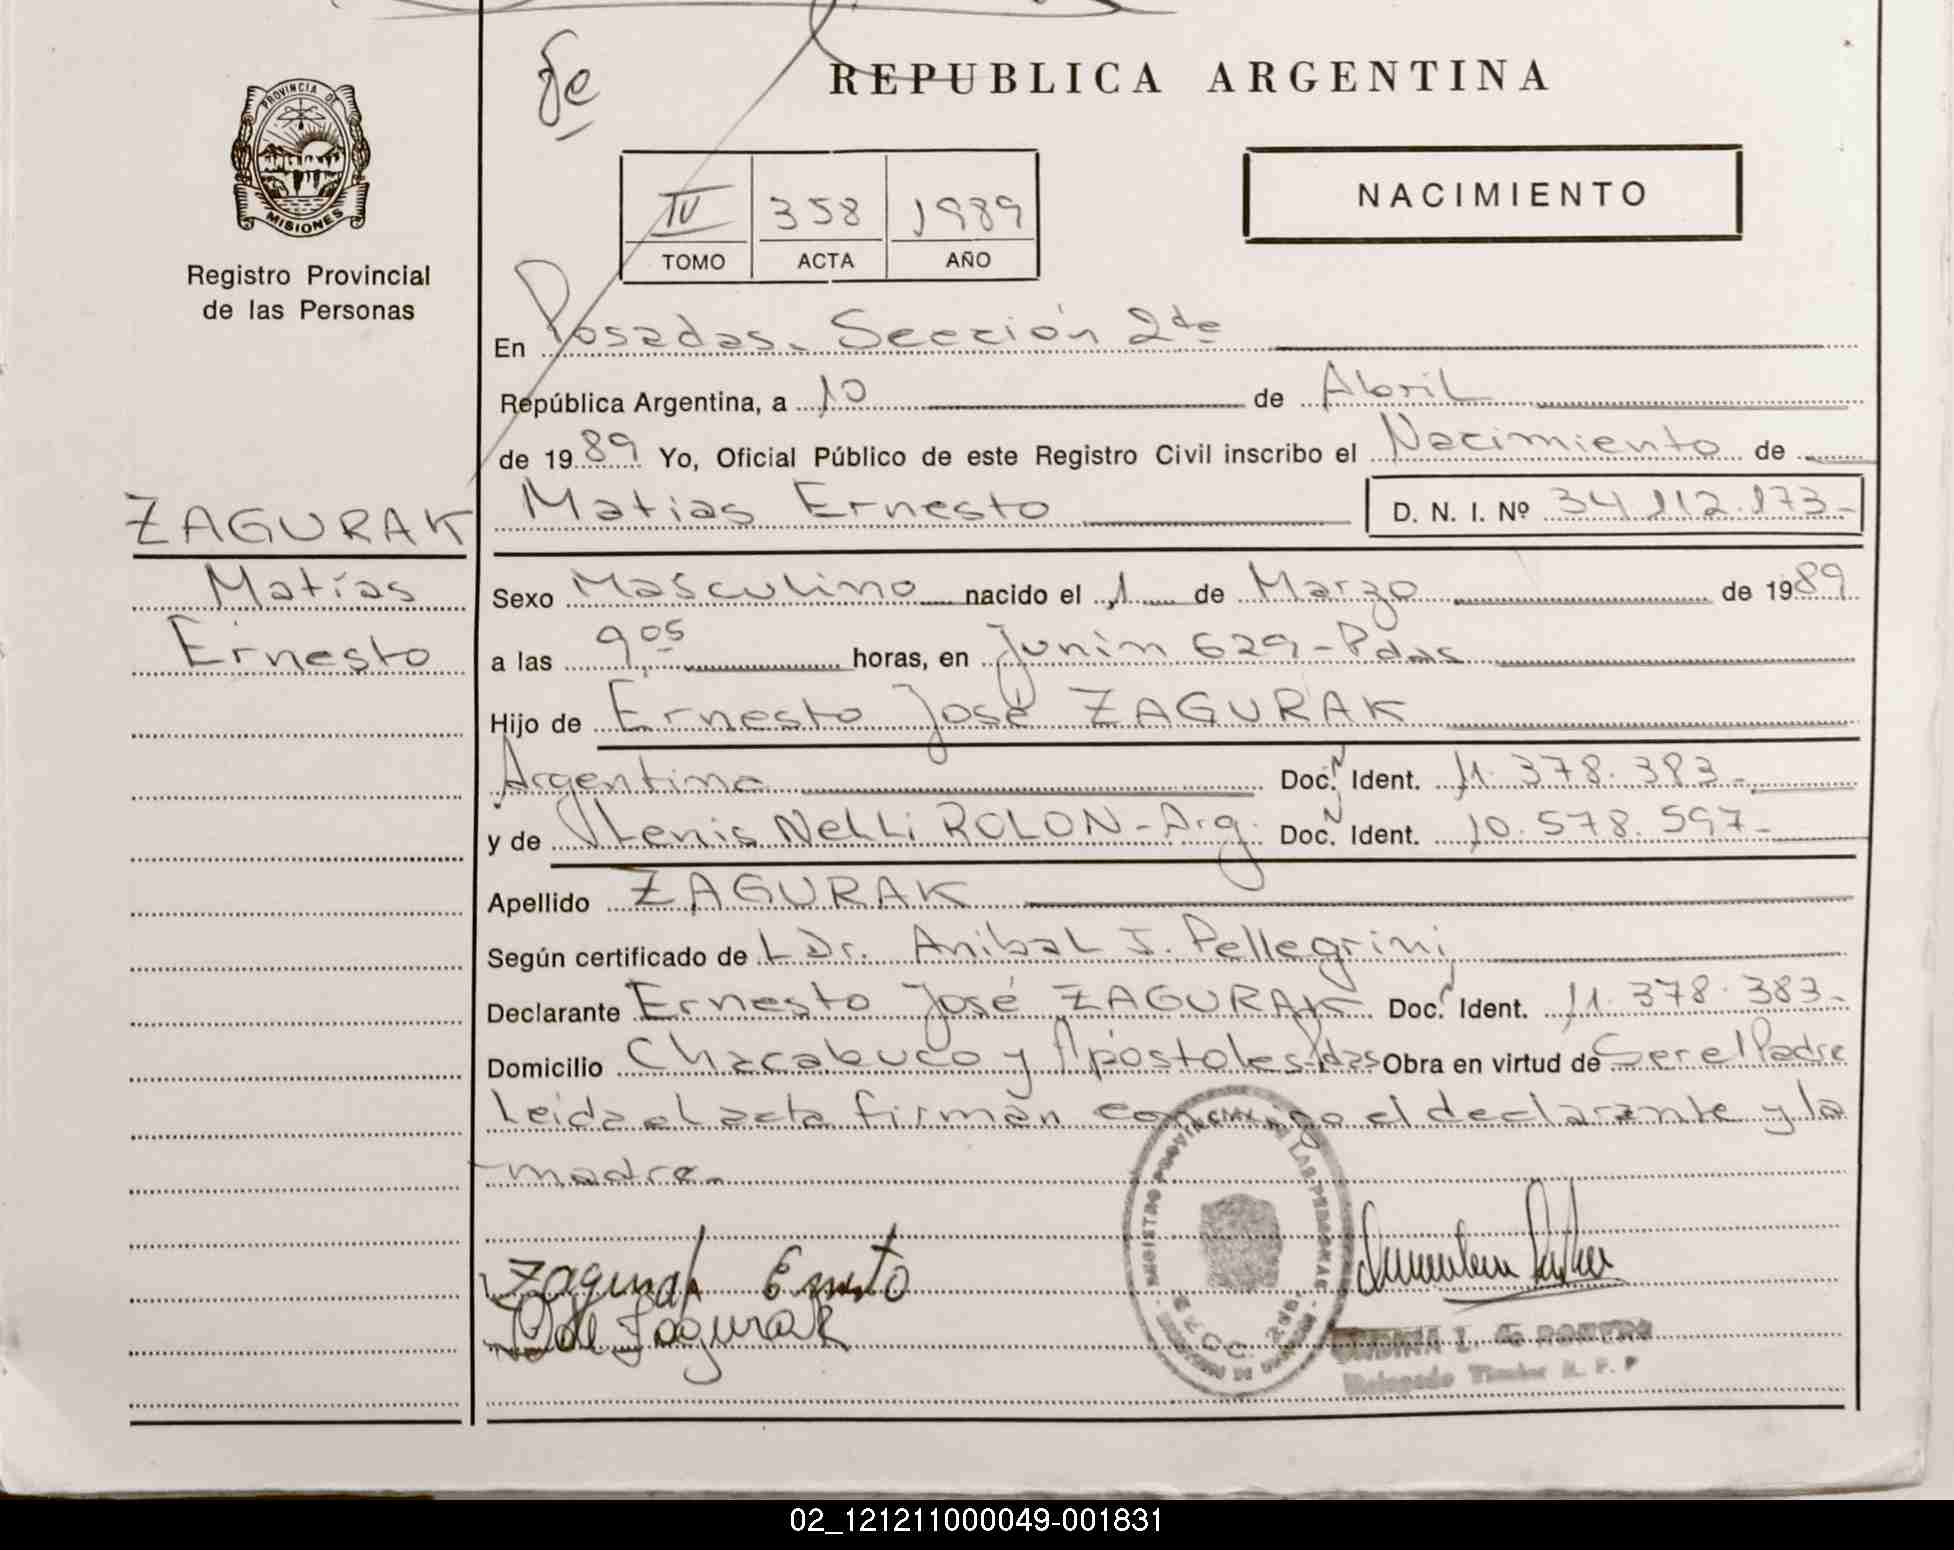 fe
REPUBLICA ARGENTINA
PROVINCIA DE
MISIONES
Registro Provincial
de las Personas
IV 358 1989
TOMO ACTA AÑO
NACIMIENTO
En Posadas. Sección 2da
República Argentina, a 10 de Abril
de 1989 Yo, Oficial Público de este Registro Civil inscribo el Nacimiento de
Matias Ernesto D. N. I. Nº 34.112.173-
ZAGURAK
Matías
Ernesto
Sexo Masculino nacido el 1 de Marzo de 1989
a las 9 05 horas, en Junin 629-Pdas
Hijo de Ernesto José ZAGURAK
Argentina Doc. N Ident. 11.378.383-
y de Nelli ROLON-Arg. Doc. N Ident. 10.578.597-
Apellido ZAGURAK
Según certificado de L Dr. Anibal J. Pellegrini
Declarante Ernesto José ZAGURAK Doc. N Ident. 11.378.383-
Domicilio Chacabuco y Apóstoles Pdas Obra en virtud de Ser el Padre
Leida el acta firman conmigo el declarante y la
madre.
Zagurak Ernesto
de Zagurak
REGISTRO PROVINCIAL DE LAS PERSONAS
Delegado Titular R. P. P
02_121211000049-001831